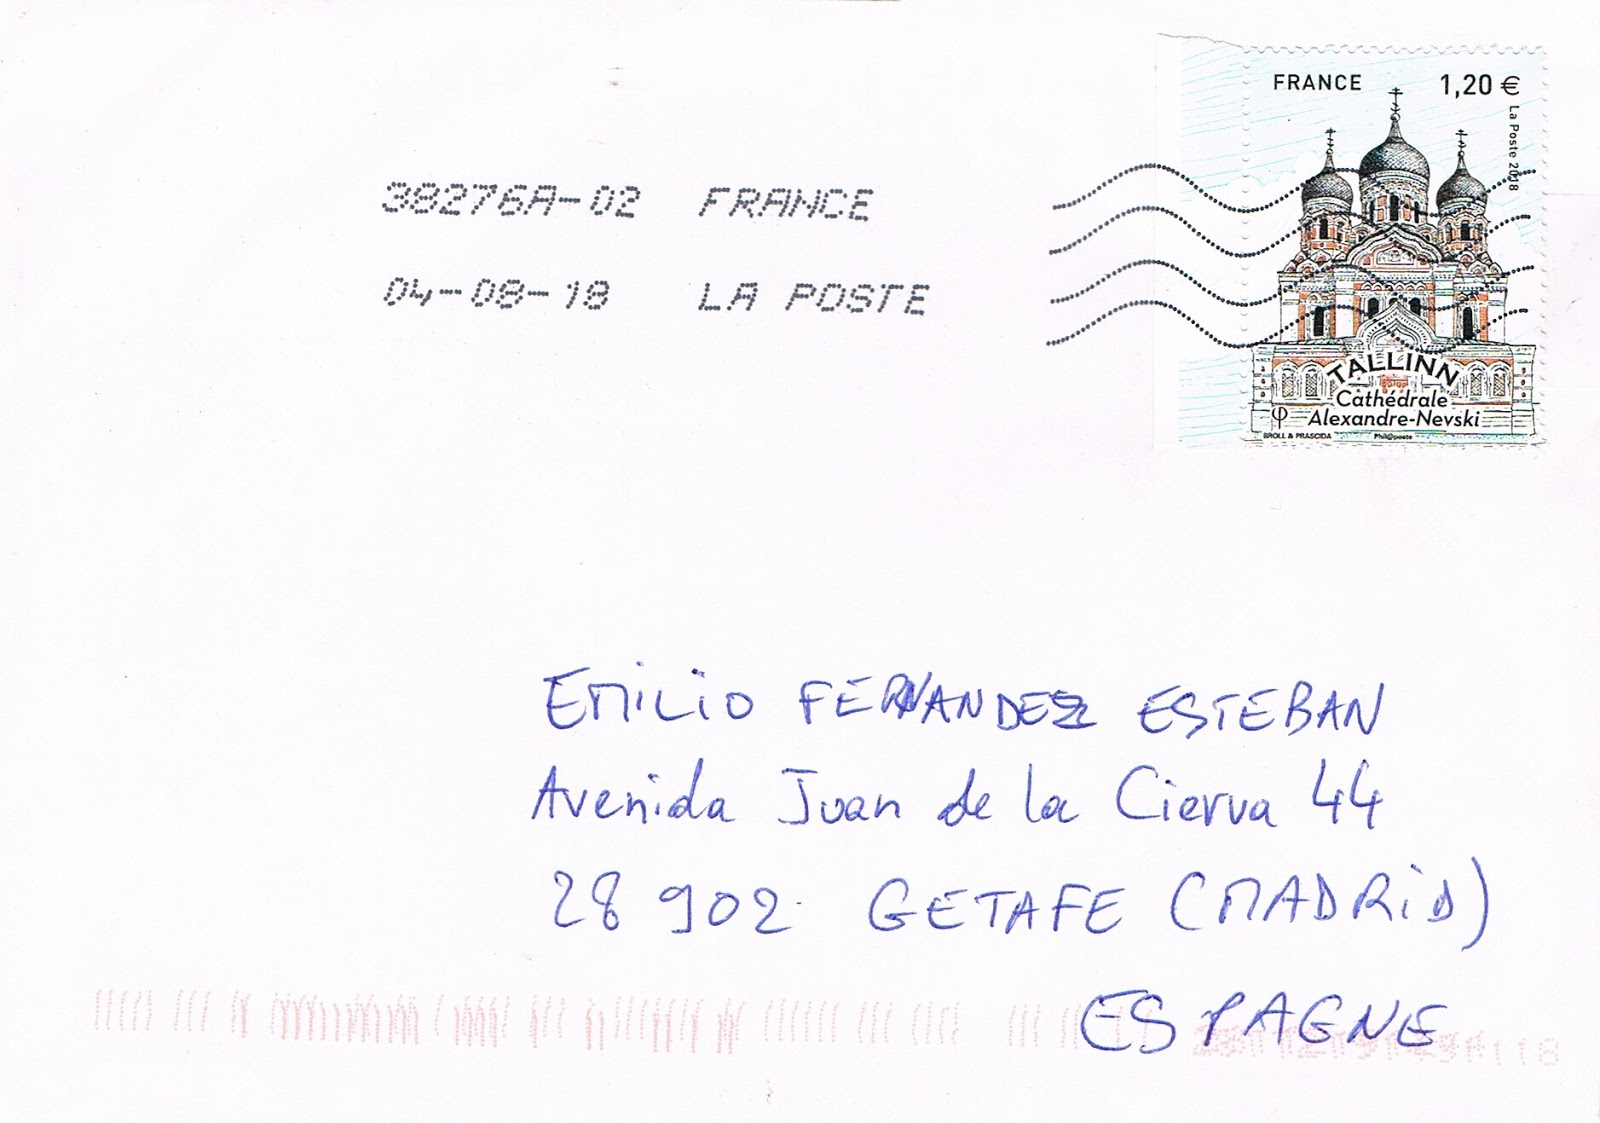 FRANCE 1,20 €
La Poste 2018
38276A-02 FRANCE
04-08-18 LA POSTE
TALLINN
Cathédrale
Alexandre-Nevski
BROLL & PRASCIDA Phil@poste
EMILIO FERNANDEZ ESTEBAN
Avenida Juan de la Cierva 44
28 902 GETAFE (MADRID)
ESPAGNE